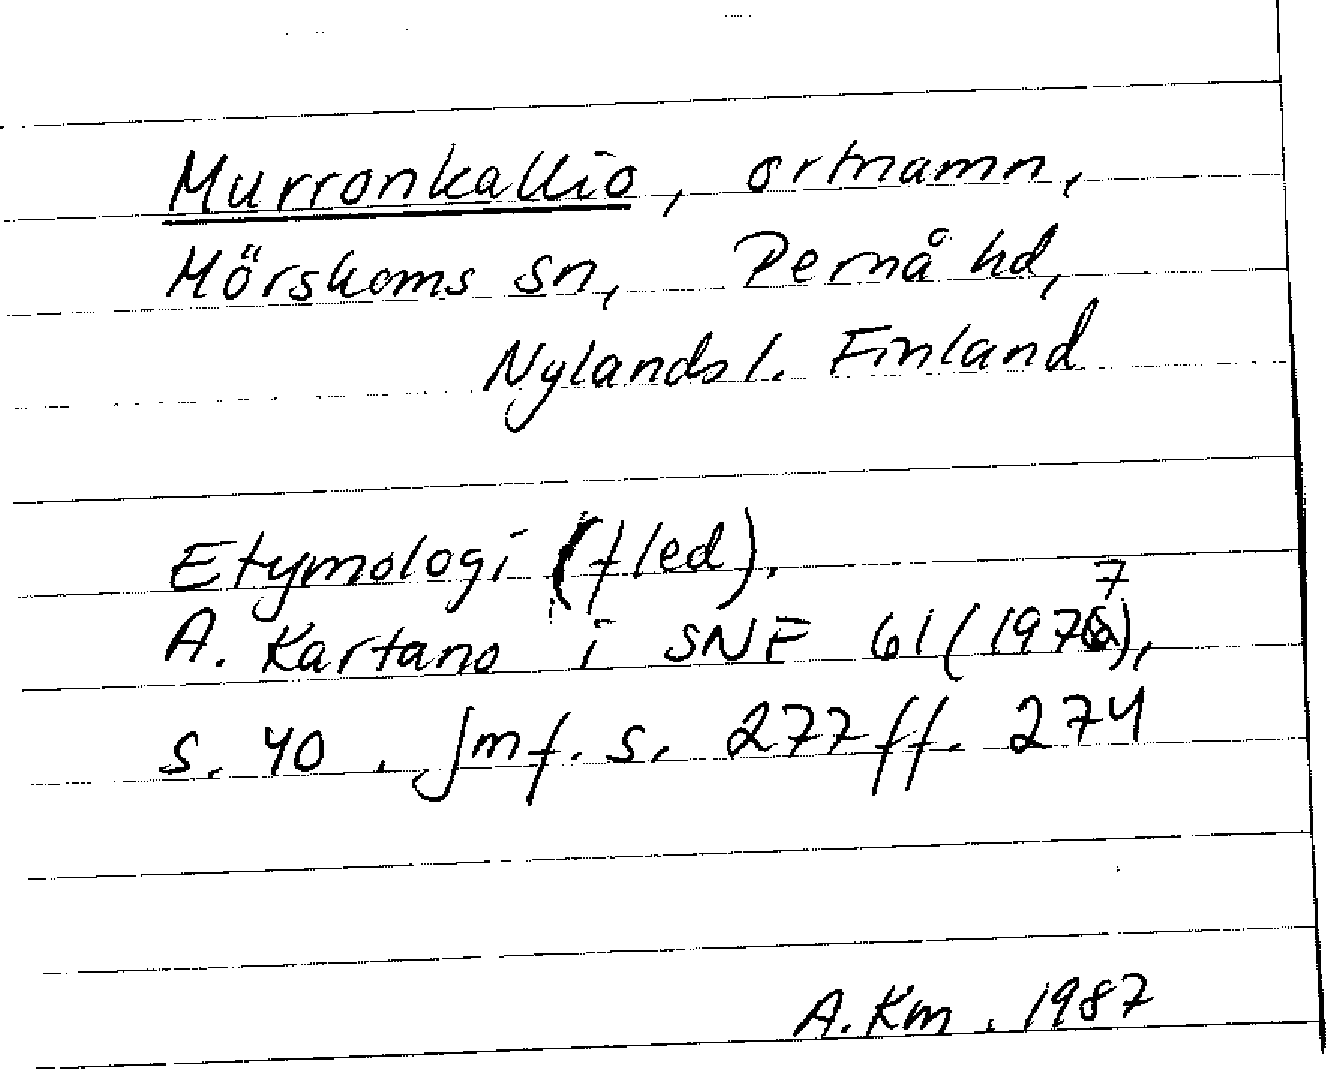 Murronkallio, ortnamn,
Mörskoms sn, Pernå hd,
Nylands l. Finland
Etymologi (f led).
A. Kartano i SNF 61 (1977),
s. 40. Jmf. s. 277 ff. 274
A. Km. 1987